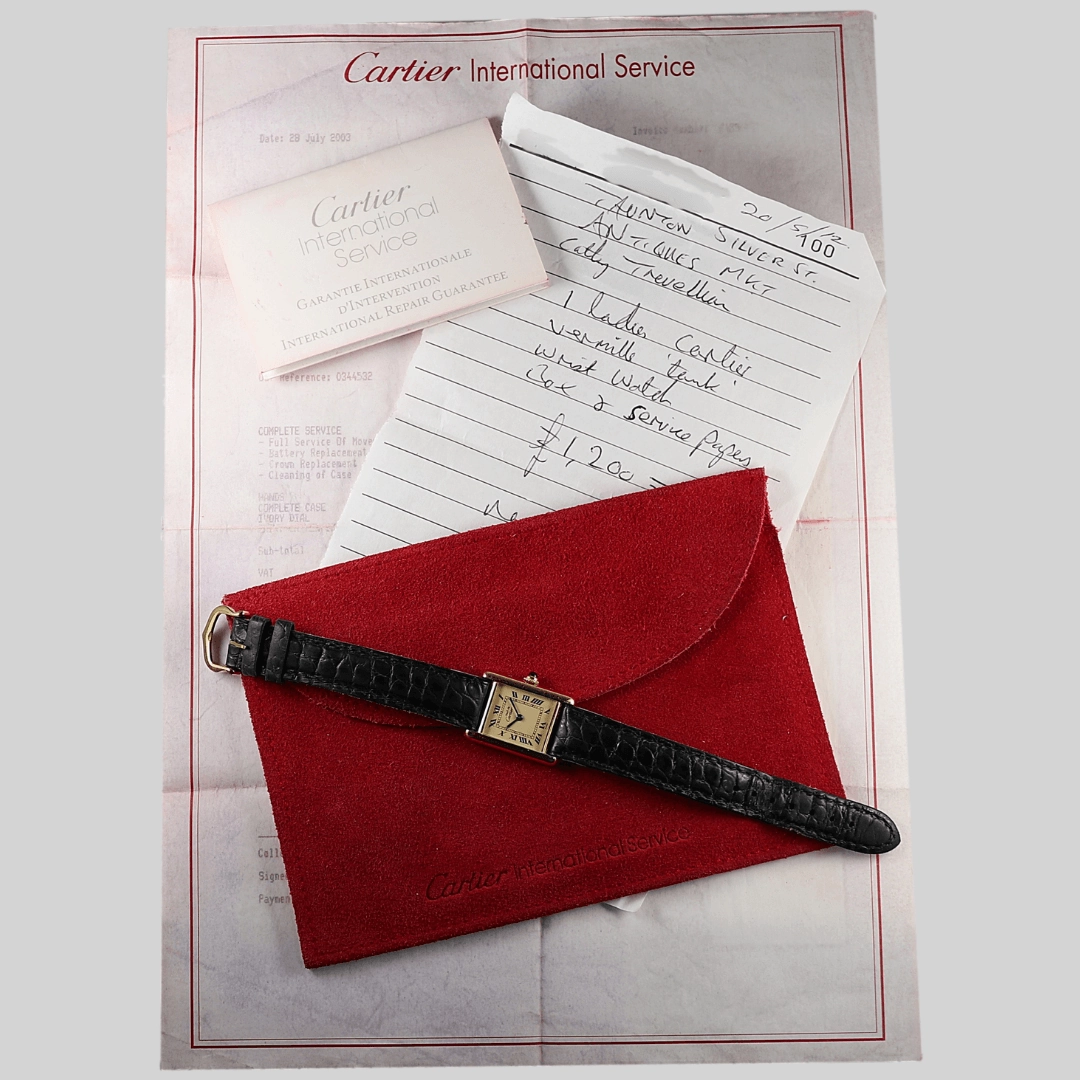 Cartier International Service
Date: 28 July 2003
Invoice Number
Cartier
International
Service
GARANTIE INTERNATIONALE
D'INTERVENTION
INTERNATIONAL REPAIR GUARANTEE
Reference: 0344532
COMPLETE SERVICE
- Full Service Of Move
- Battery Replacement
- Crown Replacement
- Cleaning of Case
HANDS
COMPLETE CASE
IVORY DIAL
Sub-total
VAT
20/5/12
100
TAUNTON SILVER ST.
ANTIQUES MKT
Cathy Trevellian
1 ladies Cartier
vermille 'tank'
wrist watch
Box & service papers
£1,200 =
Cartier International Service
Coll
Signe
Paymen
Cartier